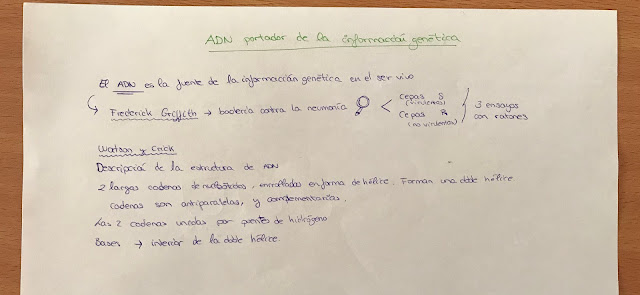 ADN portador de la información genética
El ADN es la fuente de la información genética en el ser vivo
Frederick Griffith → bacteria contra la neumonía < Cepas S (virulentas) Cepas R (no virulentas) } 3 ensayos con ratones
Watson y Crick
Descripción de la estructura de ADN
2 largas cadenas de nucleótidos, enrolladas en forma de hélice. Forman una doble hélice.
cadenas son antiparalelas, y complementarias.
Las 2 cadenas unidas por puentes de hidrógeno
Bases → interior de la doble hélice.